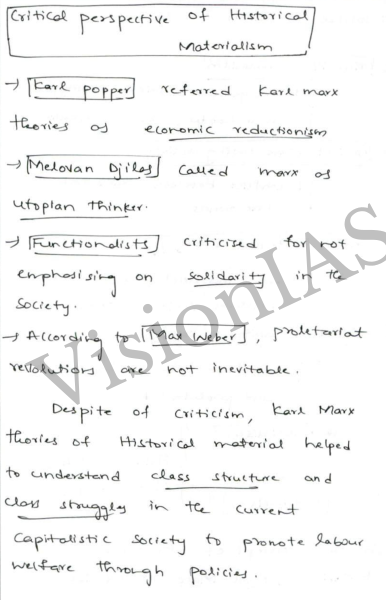 Critical perspective of Historical
Materialism
→ Karl popper referred Karl marx
theories as economic reductionism
→ Melovan Djilas called marx as
utopian thinker.
→ Functionalists criticised for not
emphosising on solidarity in the
society.
→ According to Max Weber, proletariat
revolutions are not inevitable.
Despite of criticism, Karl Marx
theories of Historical material helped
to understand class structure and
class struggles in the current
capitalistic society to promote labour
welfare through policies.
VisionIAS